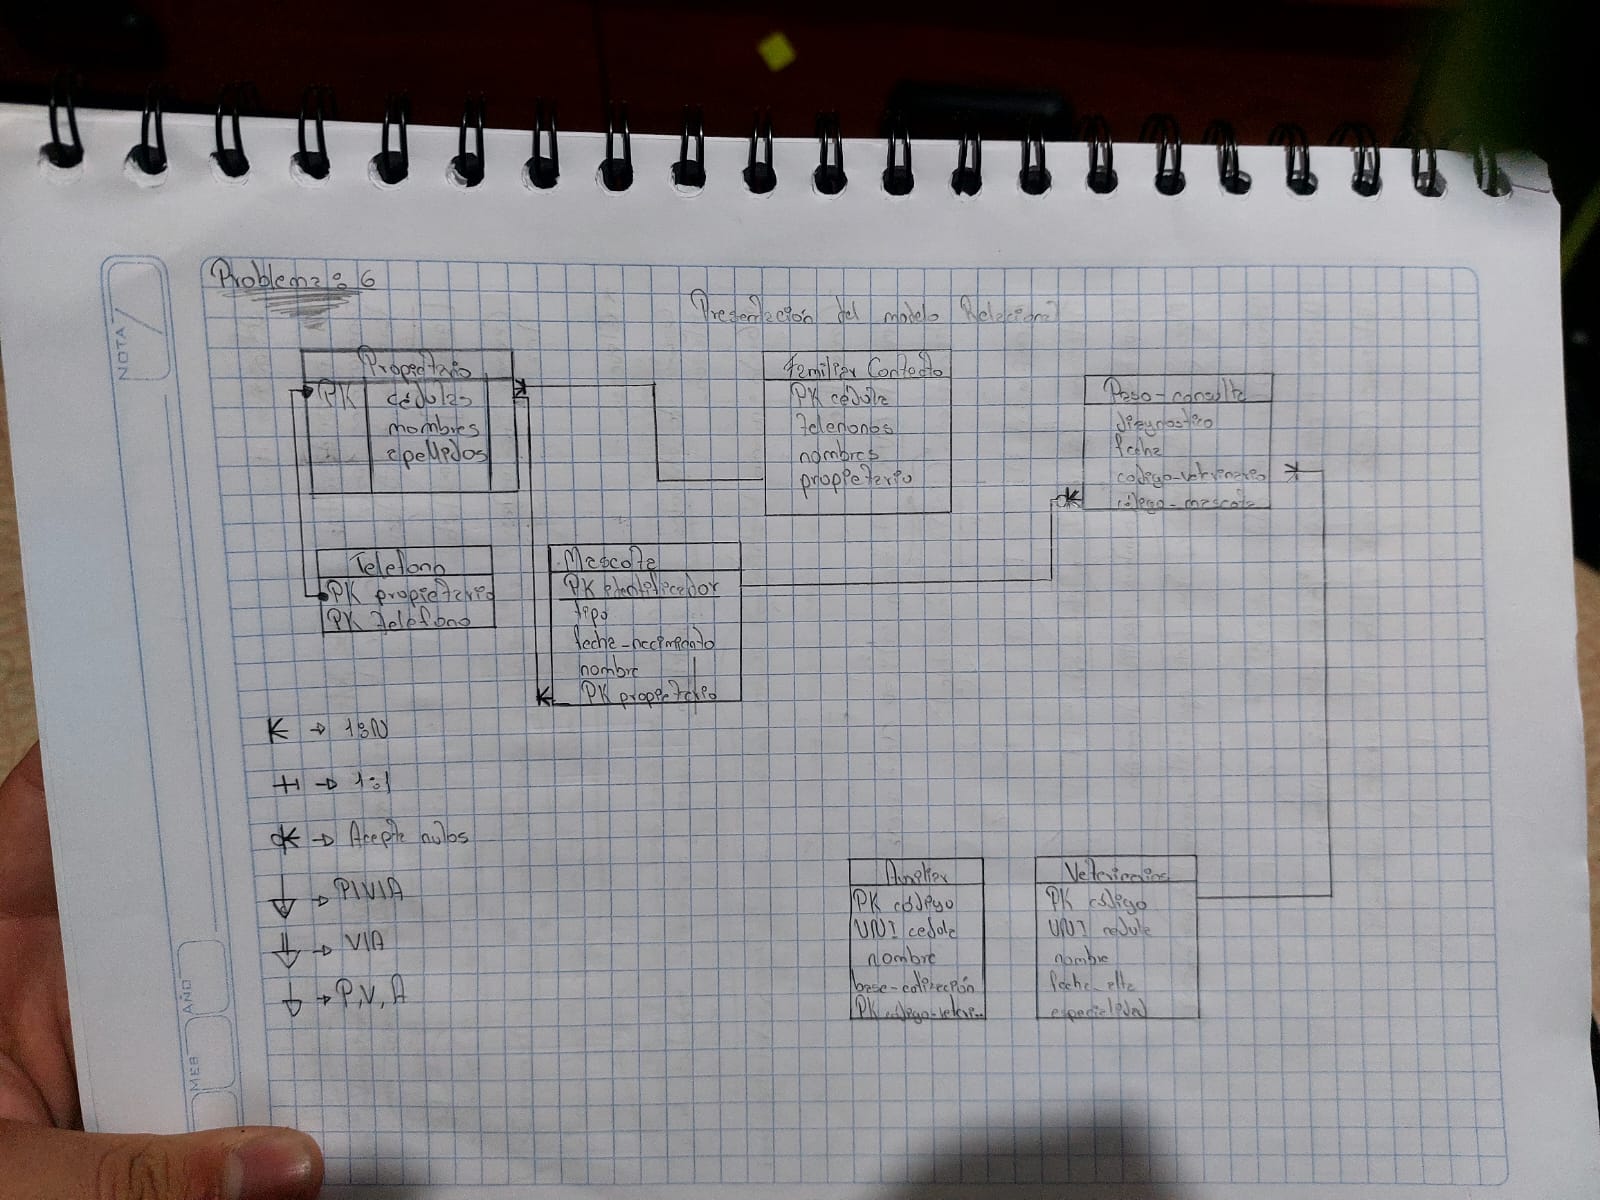 Problema: 6
Presentación del modelo Relacional
Propietario
PK cédulas
nombres
apellidos
Familiar Contacto
PK cédula
telefonos
nombres
propietario
Paso-consulta
diagnostico
fecha
codigo-vetrinario
código-mascota
Telefono
PK propietario
PK telefono
Mascota
PK identificador
tipo
fecha-necimiento
nombre
PK propietario
→ 1:N
→ 1:1
→ Acepta nulos
→
→ VIA
→ P,V,A
PK código
UNI cedula
nombre
PK código-vetri..
Veterinarios
PK código
UNI cedula
nombre
fecha-alta
especialidad
NOTA
MES
AÑO